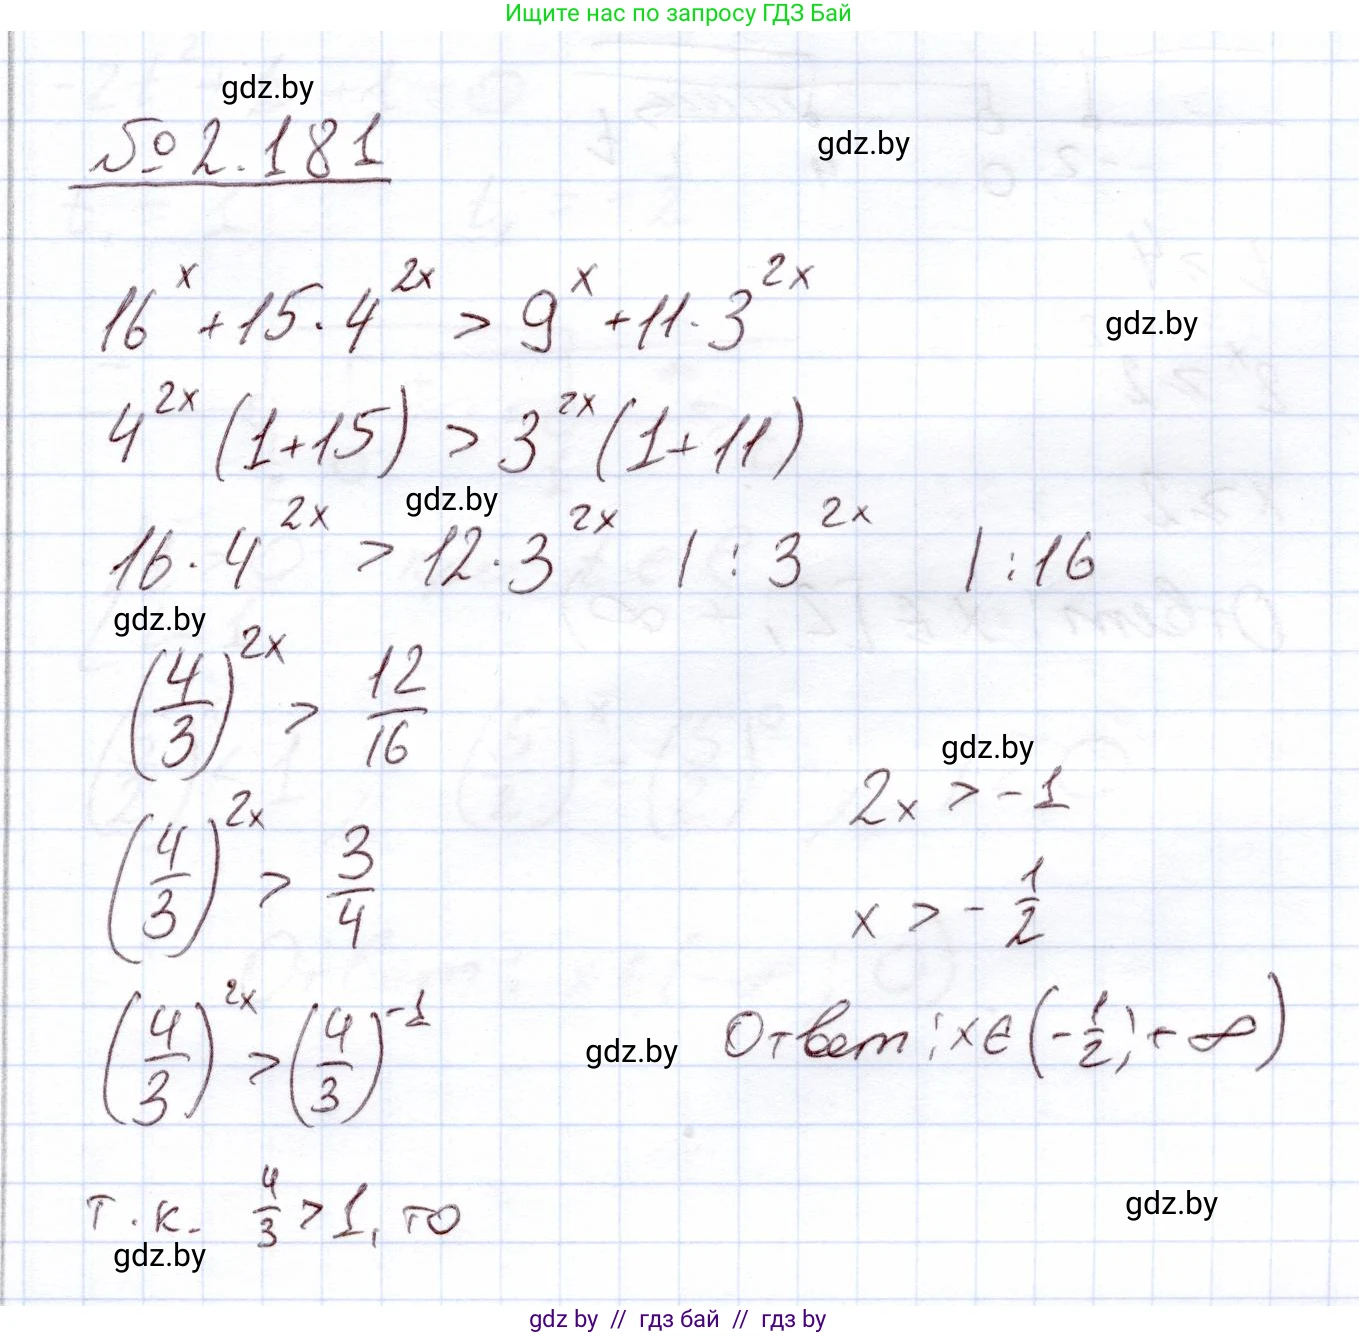 Ищите нас по запросу ГДЗ Бай
gdz.by
№ 2.181
gdz.by
16^x + 15 · 4^{2x} > 9^x + 11 · 3^{2x}
gdz.by
4^{2x} (1+15) > 3^{2x} (1+11)
gdz.by
16 · 4^{2x} > 12 · 3^{2x} | : 3^{2x} | : 16
gdz.by
(4/3)^{2x} > 12/16
gdz.by
(4/3)^{2x} > 3/4
(4/3)^{2x} > (4/3)^{-1}
т.к. 4/3 > 1, то
2x > -1
x > - 1/2
gdz.by
Ответ: x ∈ (-1/2; +∞)
gdz.by
gdz.by
gdz.by // гдз бай // гдз by